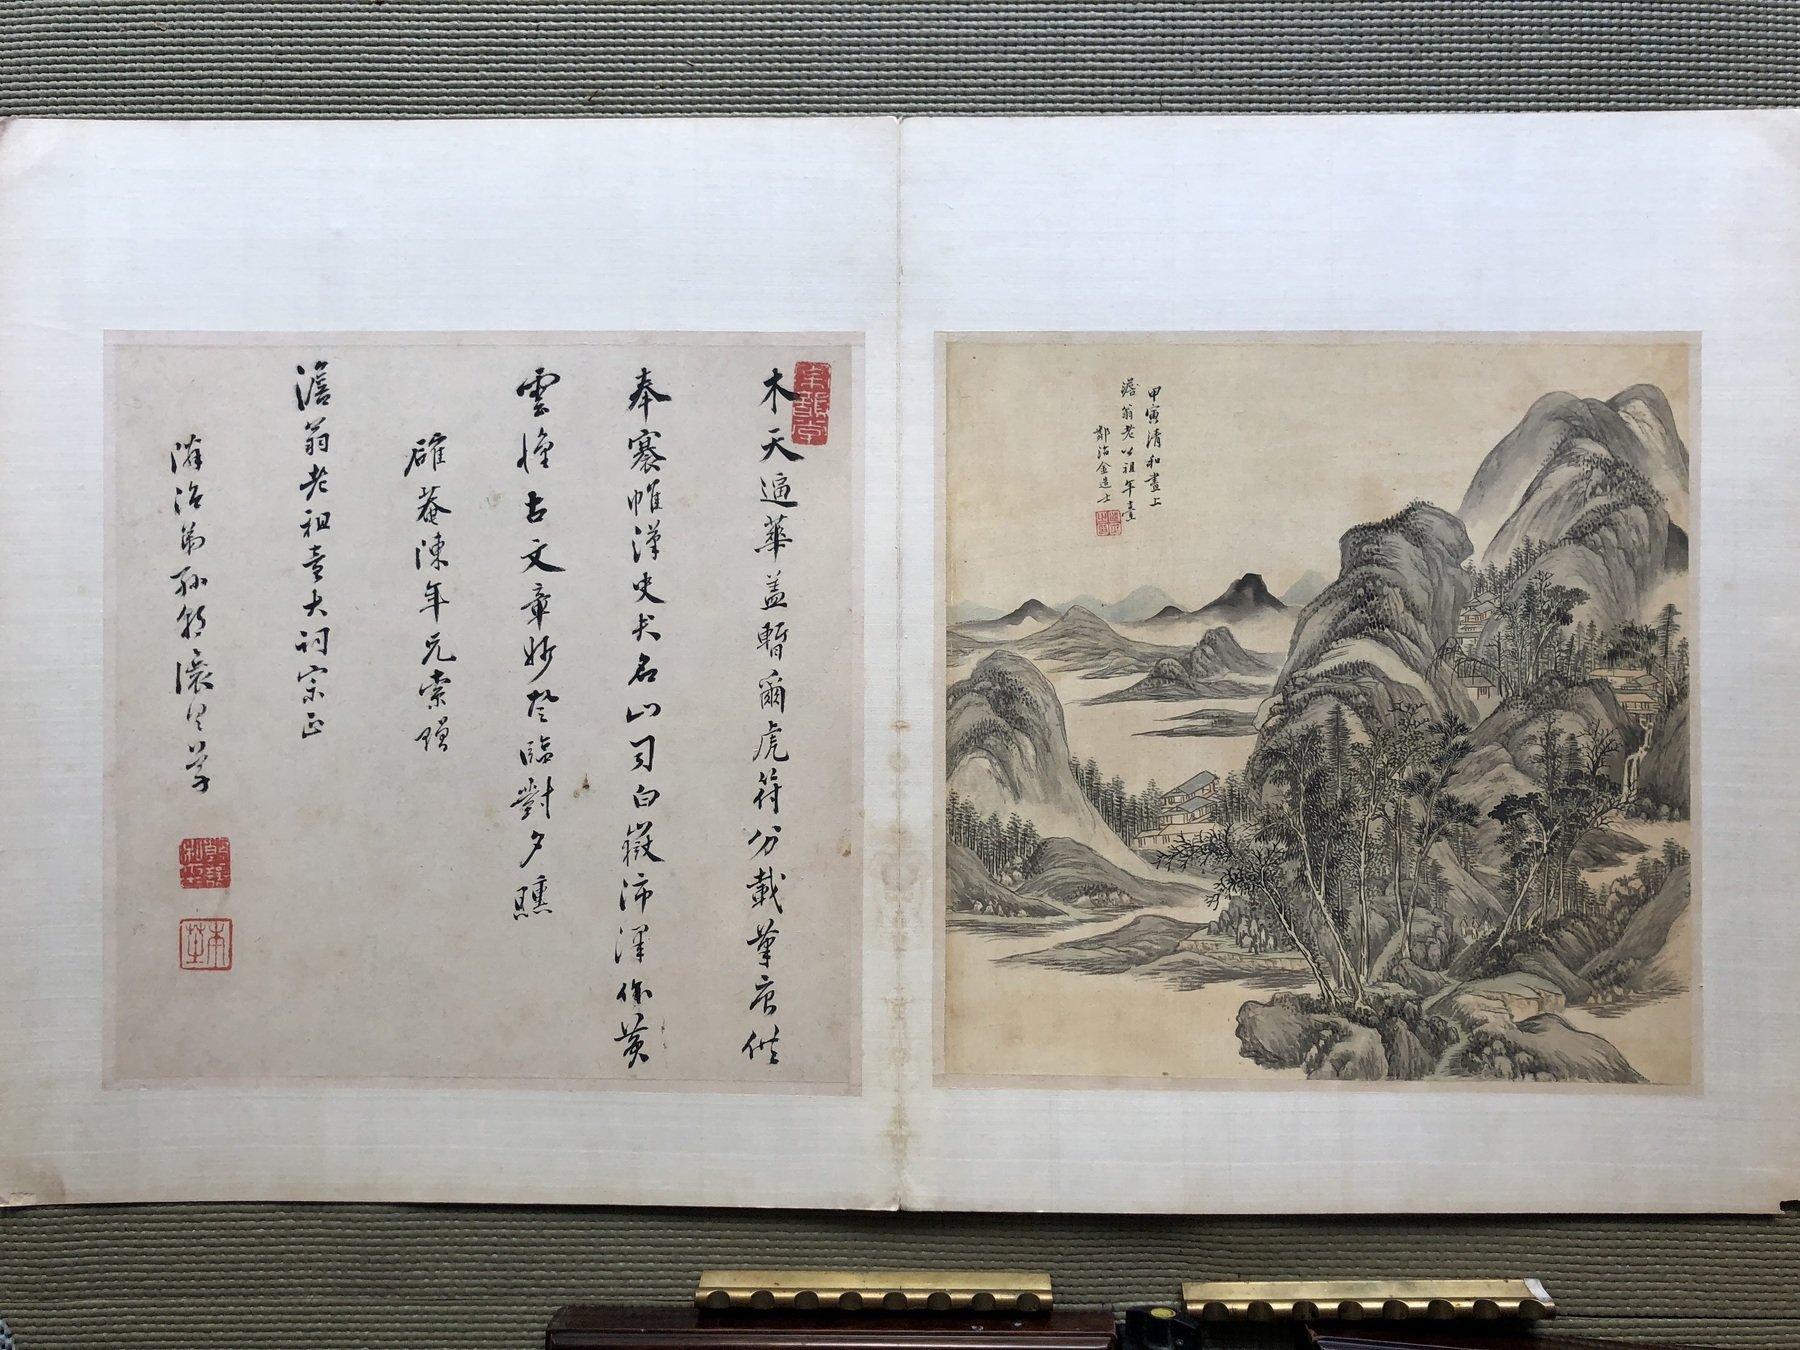 甲寅清和畫上
澹翁老公祖年臺
鄒治金造士
木天邇華蓋暫爾虎符分載筆唐供
奉褰帷漢史君名山司白嶽沛澤你黃
雲憧古文章妙登臨對夕曛
確菴陳年兄索贈
澹翁老祖臺大詞宗正
治弟孫朝讓具草